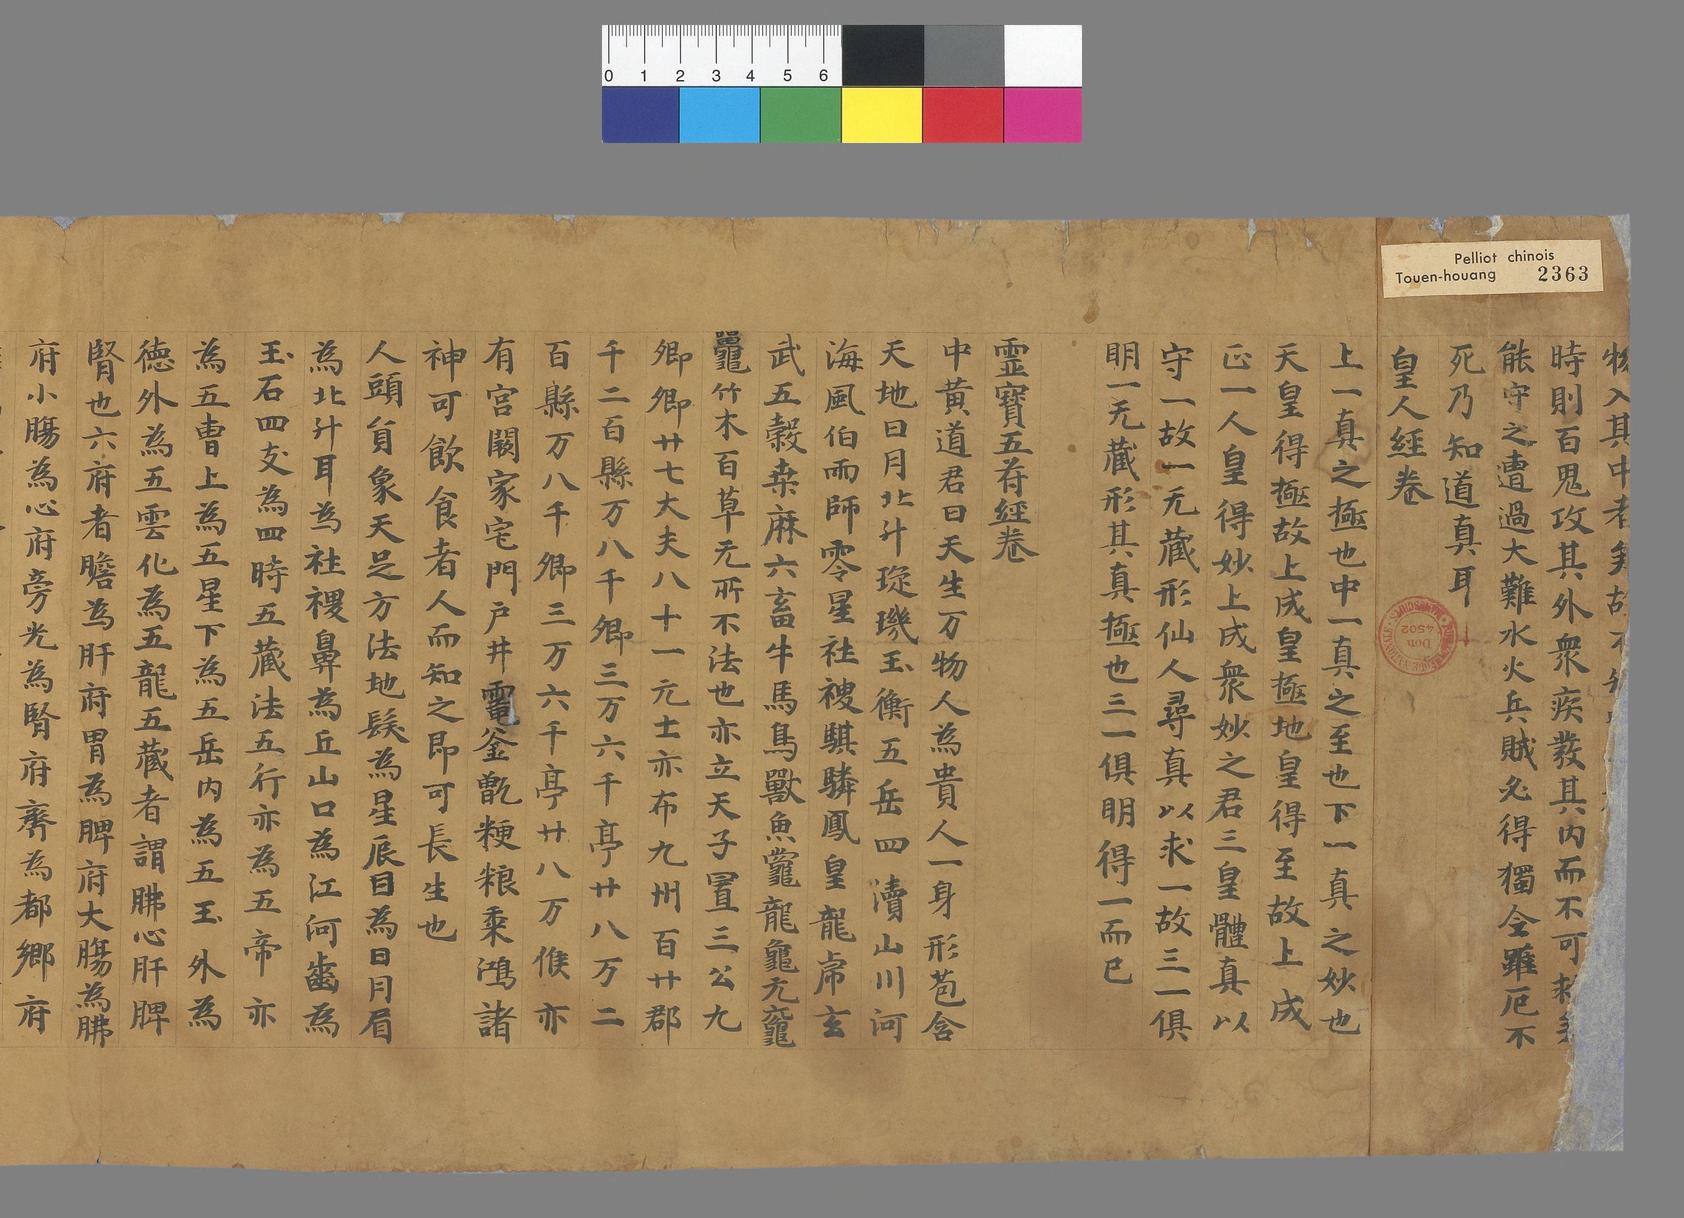 0 1 2 3 4 5 6
Pelliot chinois
Touen-houang 2363
物入其中者矣故不
時則百鬼攻其外衆疾發其内而不可
能守之遭過大難水火兵賊必得獨全雖厄不
死乃知道真耳
皇人經卷
上一真之極也中一真之至也下一真之妙也
天皇得極故上成皇極地皇得至故上成
正一人皇得妙上成衆妙之君三皇體真以
守一故一无藏形仙人尋真以求一故三一俱
明一无藏形其真極也三一俱明得一而已
靈寶五符經卷
中黄道君曰天生万物人為貴人一身形苞含
天地日月北斗琁璣玉衡五岳四瀆山川河
海風伯雨師零星社稷騏驎鳳皇龍虎玄
武五穀桒麻六畜牛馬鳥獸魚鼈龍龜元鼉
鼍竹木百草无所不法也亦立天子置三公九
卿卿廿七大夫八十一元士亦布九州百廿郡
千二百縣万八千卿三万六千亭廿八万二
百縣万八千卿三万六千亭廿八万候亦
有宫闕家宅門户井竃釜甑粳粮乗鴻諸
神可飲食者人而知之即可長生也
人頭負象天足方法地髮為星辰目為日月眉
為北斗耳為社稷鼻為丘山口為江河齒為
玉石四支為四時五藏法五行亦為五帝亦
為五曹上為五星下為五岳内為五玉外為
德外為五雲化為五龍五藏者謂肺心肝脾
腎也六府者膽為肝府胃為脾府大膓為肺
府小膓為心府旁光為腎府齊為都鄉府
Don
4502